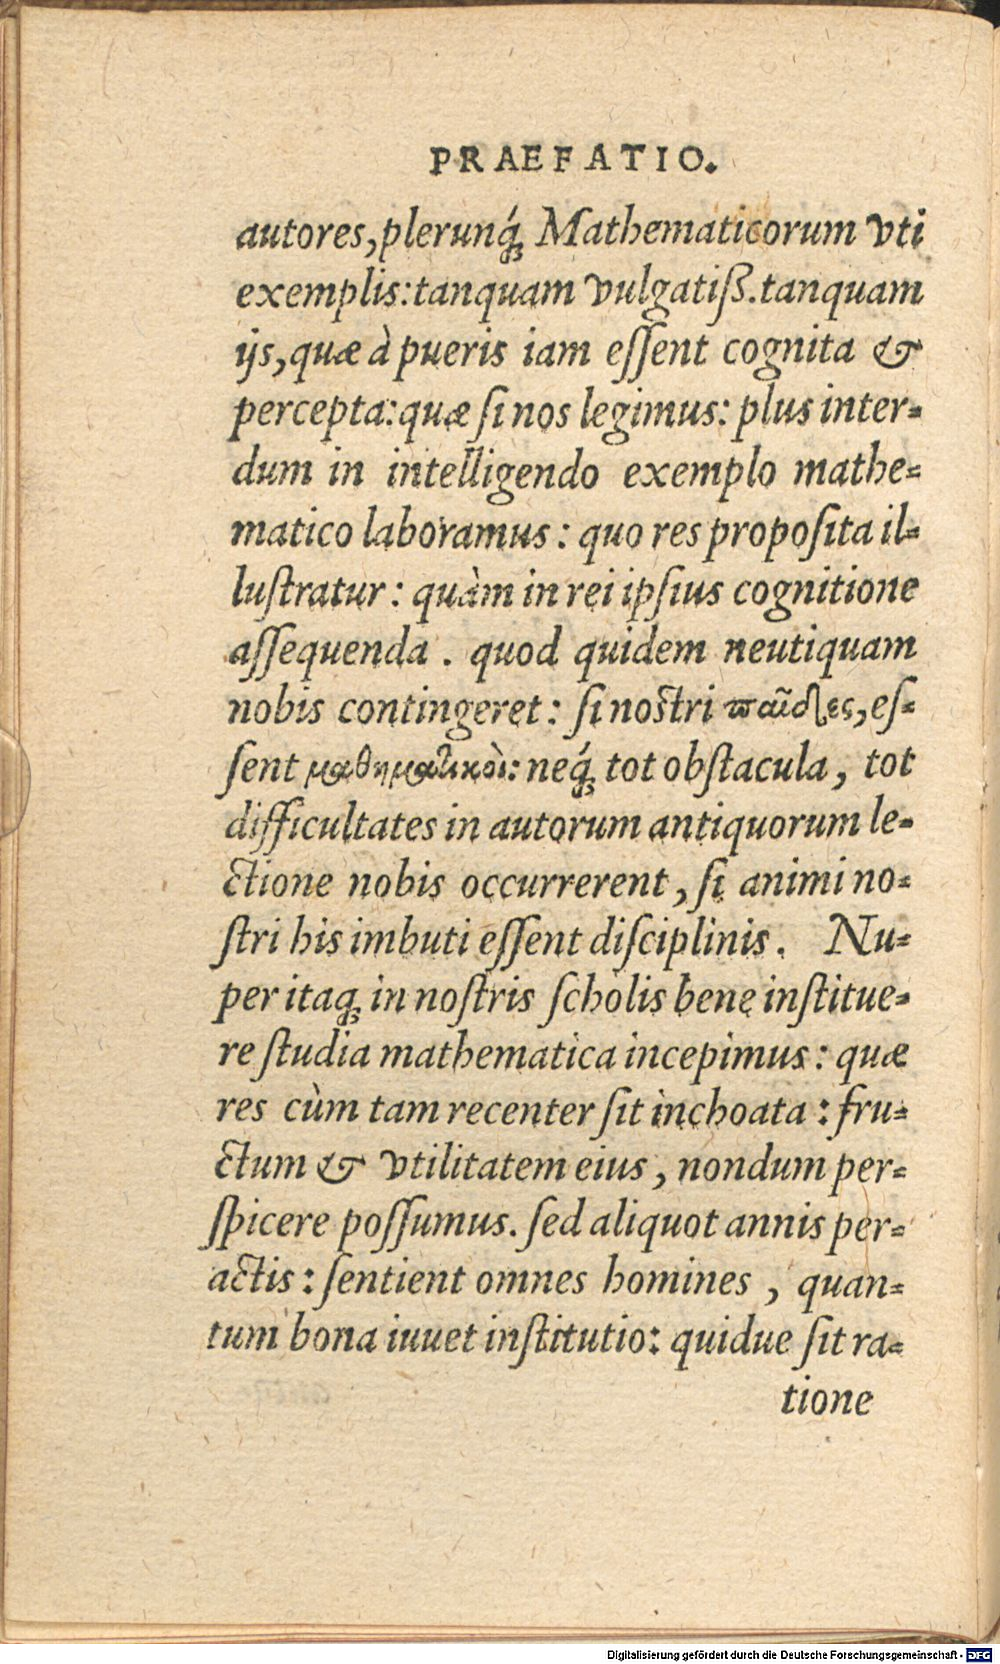 PRAEFATIO.
autores, plerunq́; Mathematicorum vti
exemplis: tanquam vulgatiß. tanquam
ijs, quæ à pueris iam eſſent cognita &
percepta: quæ ſi nos legimus: plus inter-
dum in intelligendo exemplo mathe-
matico laboramus: quo res propoſita il-
luſtratur: quàm in rei ipſius cognitione
aſſequenda. quod quidem neutiquam
nobis contingeret: ſi noſtri παῖδες, eſ-
ſent μαθηματικοὶ: neq́; tot obſtacula, tot
difficultates in autorum antiquorum le-
ctione nobis occurrerent, ſi animi no-
ſtri his imbuti eſſent diſciplinis. Nu-
per itaq; in noſtris ſcholis bene inſtitue-
re ſtudia mathematica incepimus: quæ
res cùm tam recenter ſit inchoata: fru-
ctum & vtilitatem eius, nondum per-
ſpicere poſſumus. ſed aliquot annis per-
actis: ſentient omnes homines, quan-
tum bona iuuet inſtitutio: quidue ſit ra-
tione
Digitalisierung gefördert durch die Deutsche Forschungsgemeinschaft - DFG